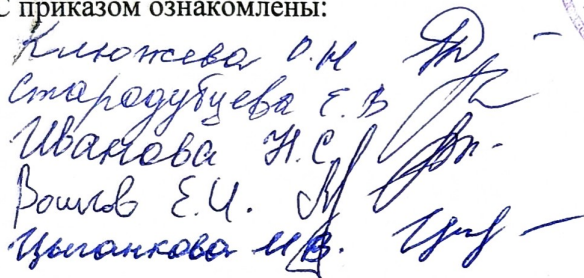 С приказом ознакомлены:
Клюжева О.Н
Стародубцева Е.В
Иванова Н.С.
Вошлов Е.И.
Цыганкова И.В.